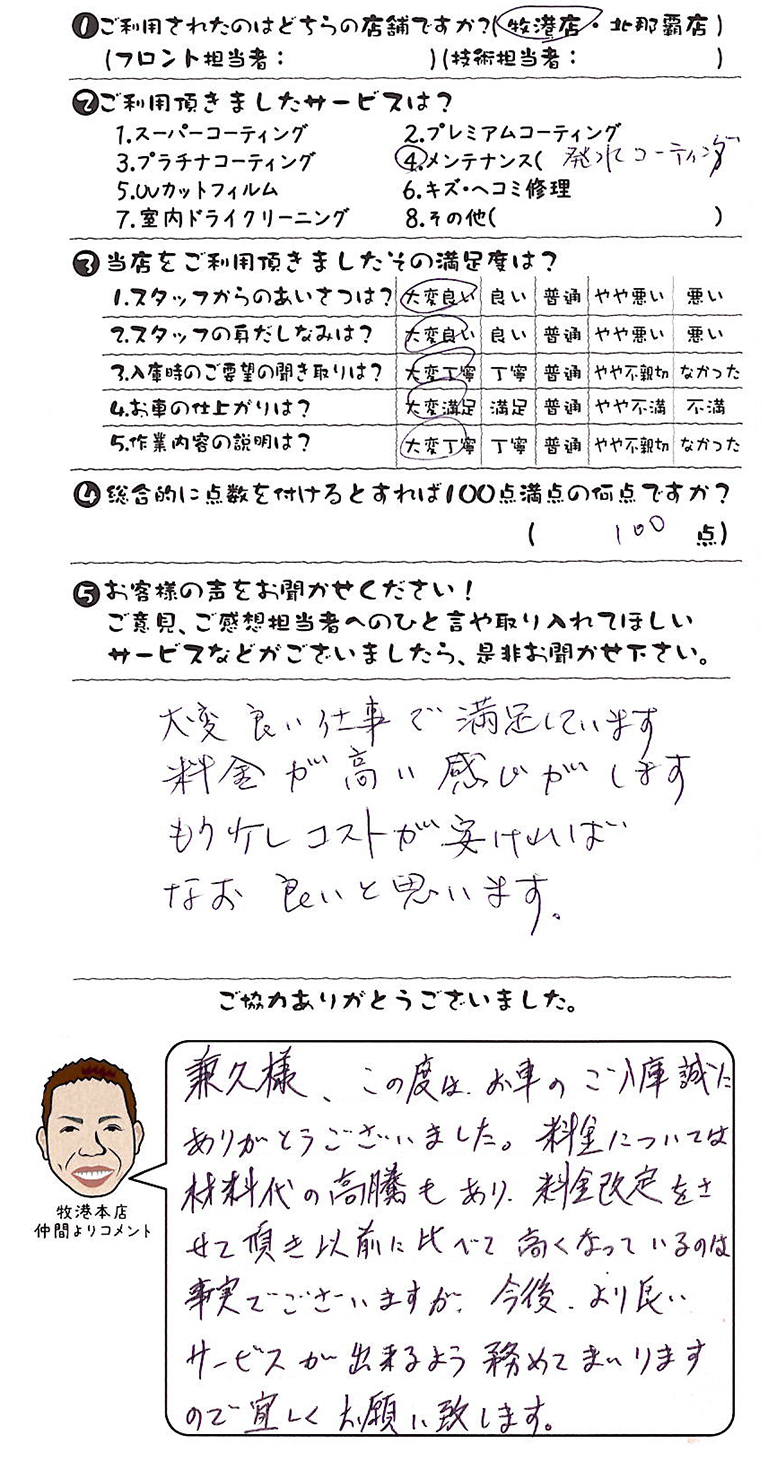 ❶ご利用されたのはどちらの店舗ですか?(牧港店・北那覇店)
(フロント担当者: )(技術担当者: )
❷ご利用頂きましたサービスは?
1.スーパーコーティング 2.プレミアムコーティング
3.プラチナコーティング 4.メンテナンス( 発水コーティング
5.UVカットフィルム 6.キズ・ヘコミ修理
7.室内ドライクリーニング 8.その他( )
❸当店をご利用頂きましたその満足度は?
1.スタッフからのあいさつは? 大変良い 良い 普通 やや悪い 悪い
2.スタッフの身だしなみは? 大変良い 良い 普通 やや悪い 悪い
3.入庫時のご要望の聞き取りは? 大変丁寧 丁寧 普通 やや不親切 なかった
4.お車の仕上がりは? 大変満足 満足 普通 やや不満 不満
5.作業内容の説明は? 大変丁寧 丁寧 普通 やや不親切 なかった
❹総合的に点数を付けるとすれば100点満点の何点ですか?
( 100 点)
❺お客様の声をお聞かせください!
ご意見、ご感想担当者へのひと言や取り入れてほしい
サービスなどがございましたら、是非お聞かせ下さい。
大変良い仕事で満足しています
料金が高い感じがします
もう少しコストが安ければ
なお良いと思います。
ご協力ありがとうございました。
兼久様、この度は、お車のご入庫誠に
ありがとうございました。料金については
材料代の高騰もあり、料金改定をさ
せて頂き以前に比べて高くなっているのは
事実でございますが、今後、より良い
サービスが出来るよう務めてまいります
ので宜しくお願い致します。
牧港本店
仲間よりコメント